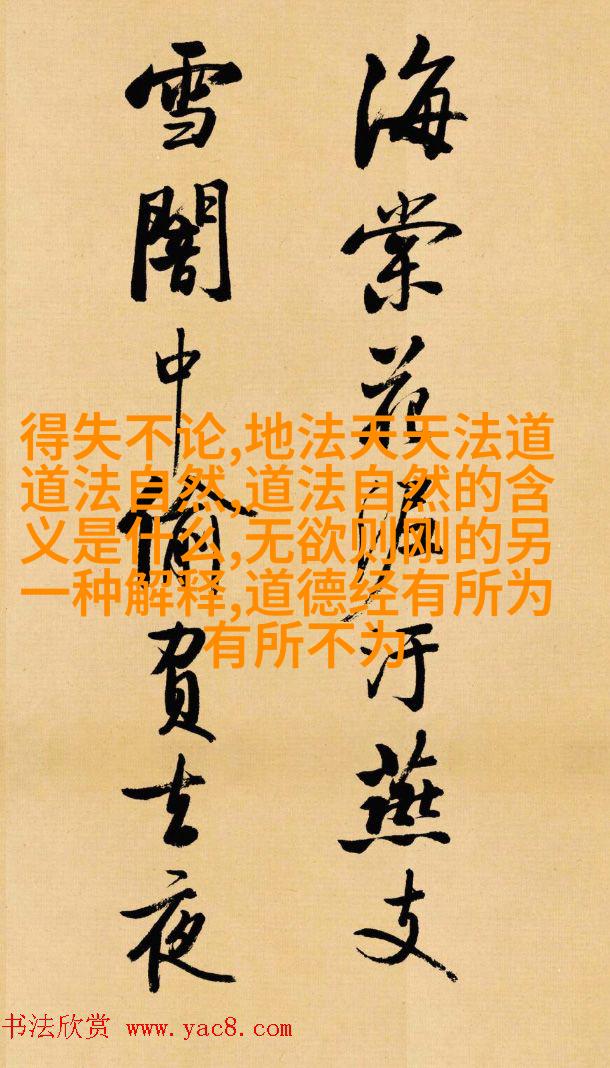 海棠花泥汙燕支
雪闇中偷負去夜
得失不论,地法天天法道
道法自然,道法自然的含
义是什么,无欲则刚的另
一种解释,道德经有所为
有所不为
书法欣赏 www.yac8.com